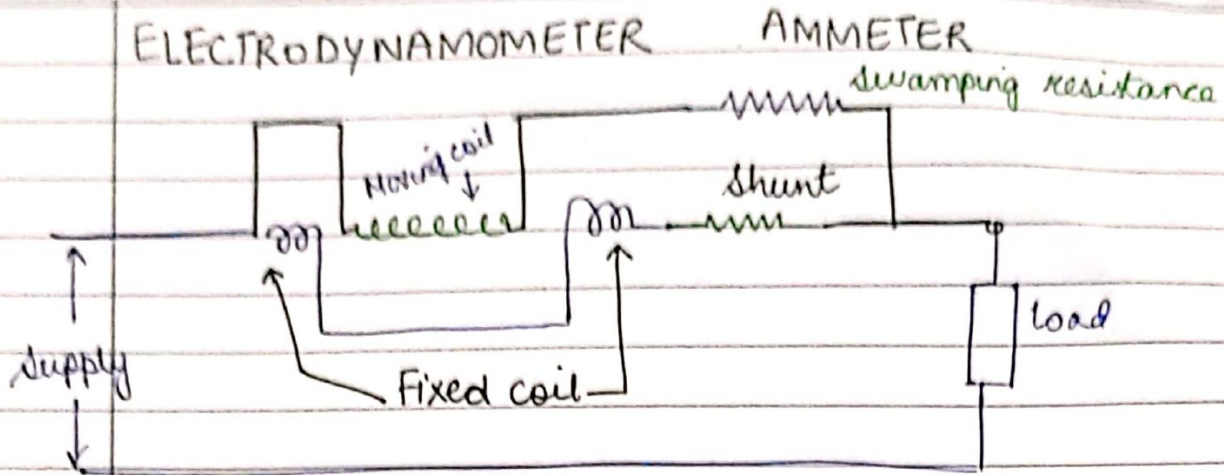 ELECTRODYNAMOMETER AMMETER
swamping resistance
Moving coil
Shunt
load
Supply
Fixed coil